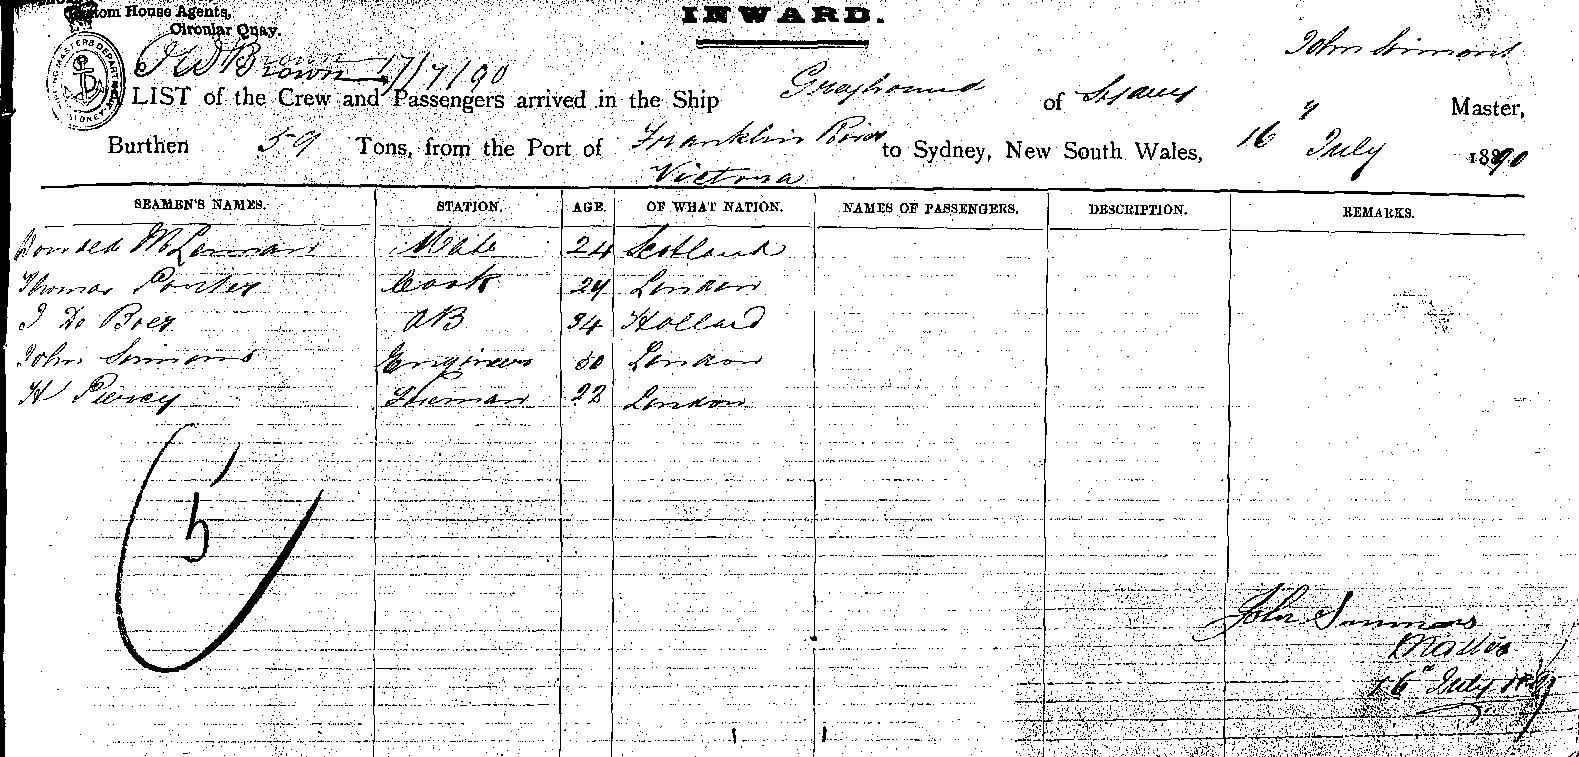 House Agents,
INWARD.
Circular Quay.
John Simmons
Brown 17/7/90
LIST of the Crew and Passengers arrived in the Ship Greyhound of Sydney Master,
Burthen 59 Tons, from the Port of Franklin River to Sydney, New South Wales, 16" July 1890
Victoria
SEAMEN'S NAMES. STATION. AGE. OF WHAT NATION. NAMES OF PASSENGERS. DESCRIPTION. REMARKS.
Donald McLennan Mate 24 Scotland
Thomas Porter Cook 29 London
J De Boer AB 34 Holland
John Simmons Engineer 50 London
H Piercy Fireman 22 London
5
John Simmons
Master
16" July 1890